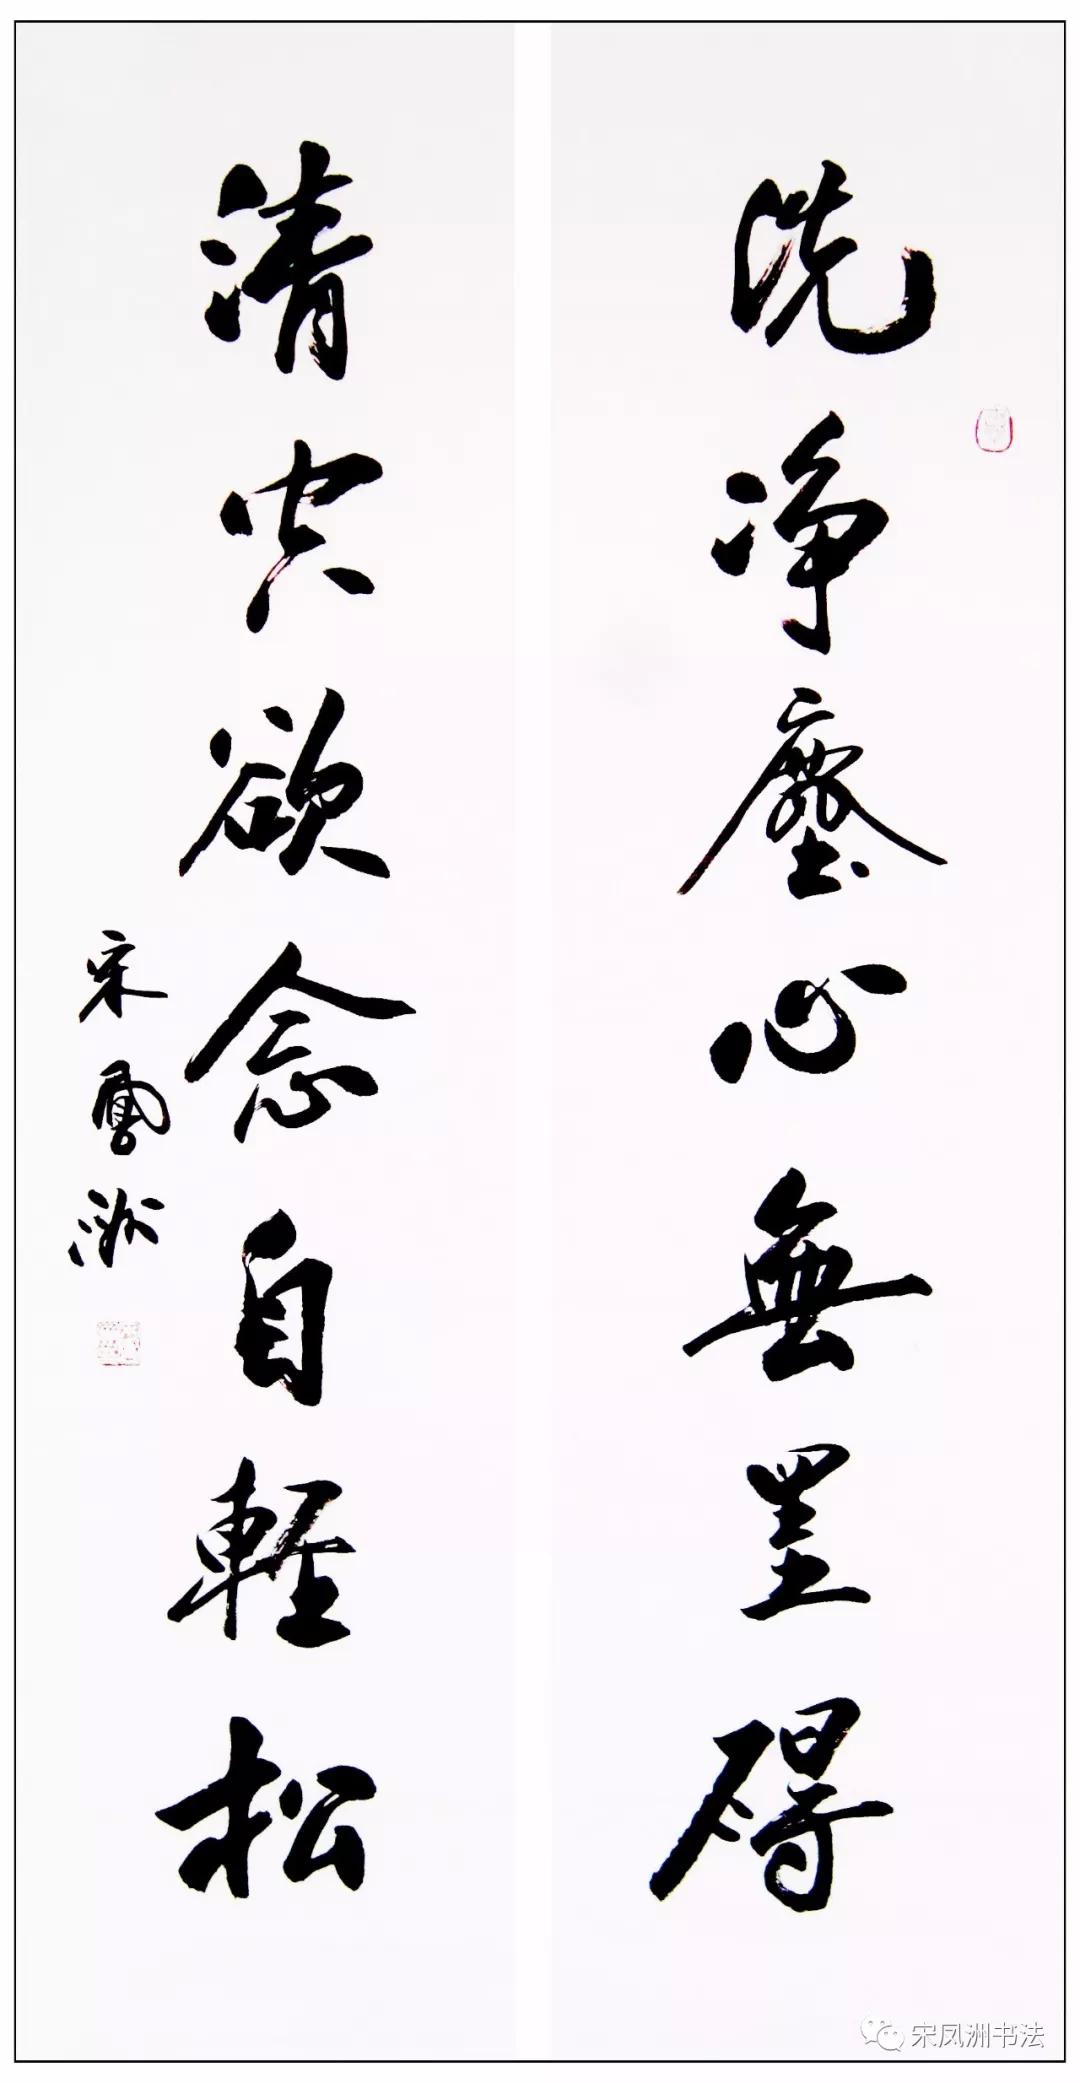 洗净塵心無罣碍
清空欲念自輕松
宋鳳洲
宋凤洲书法